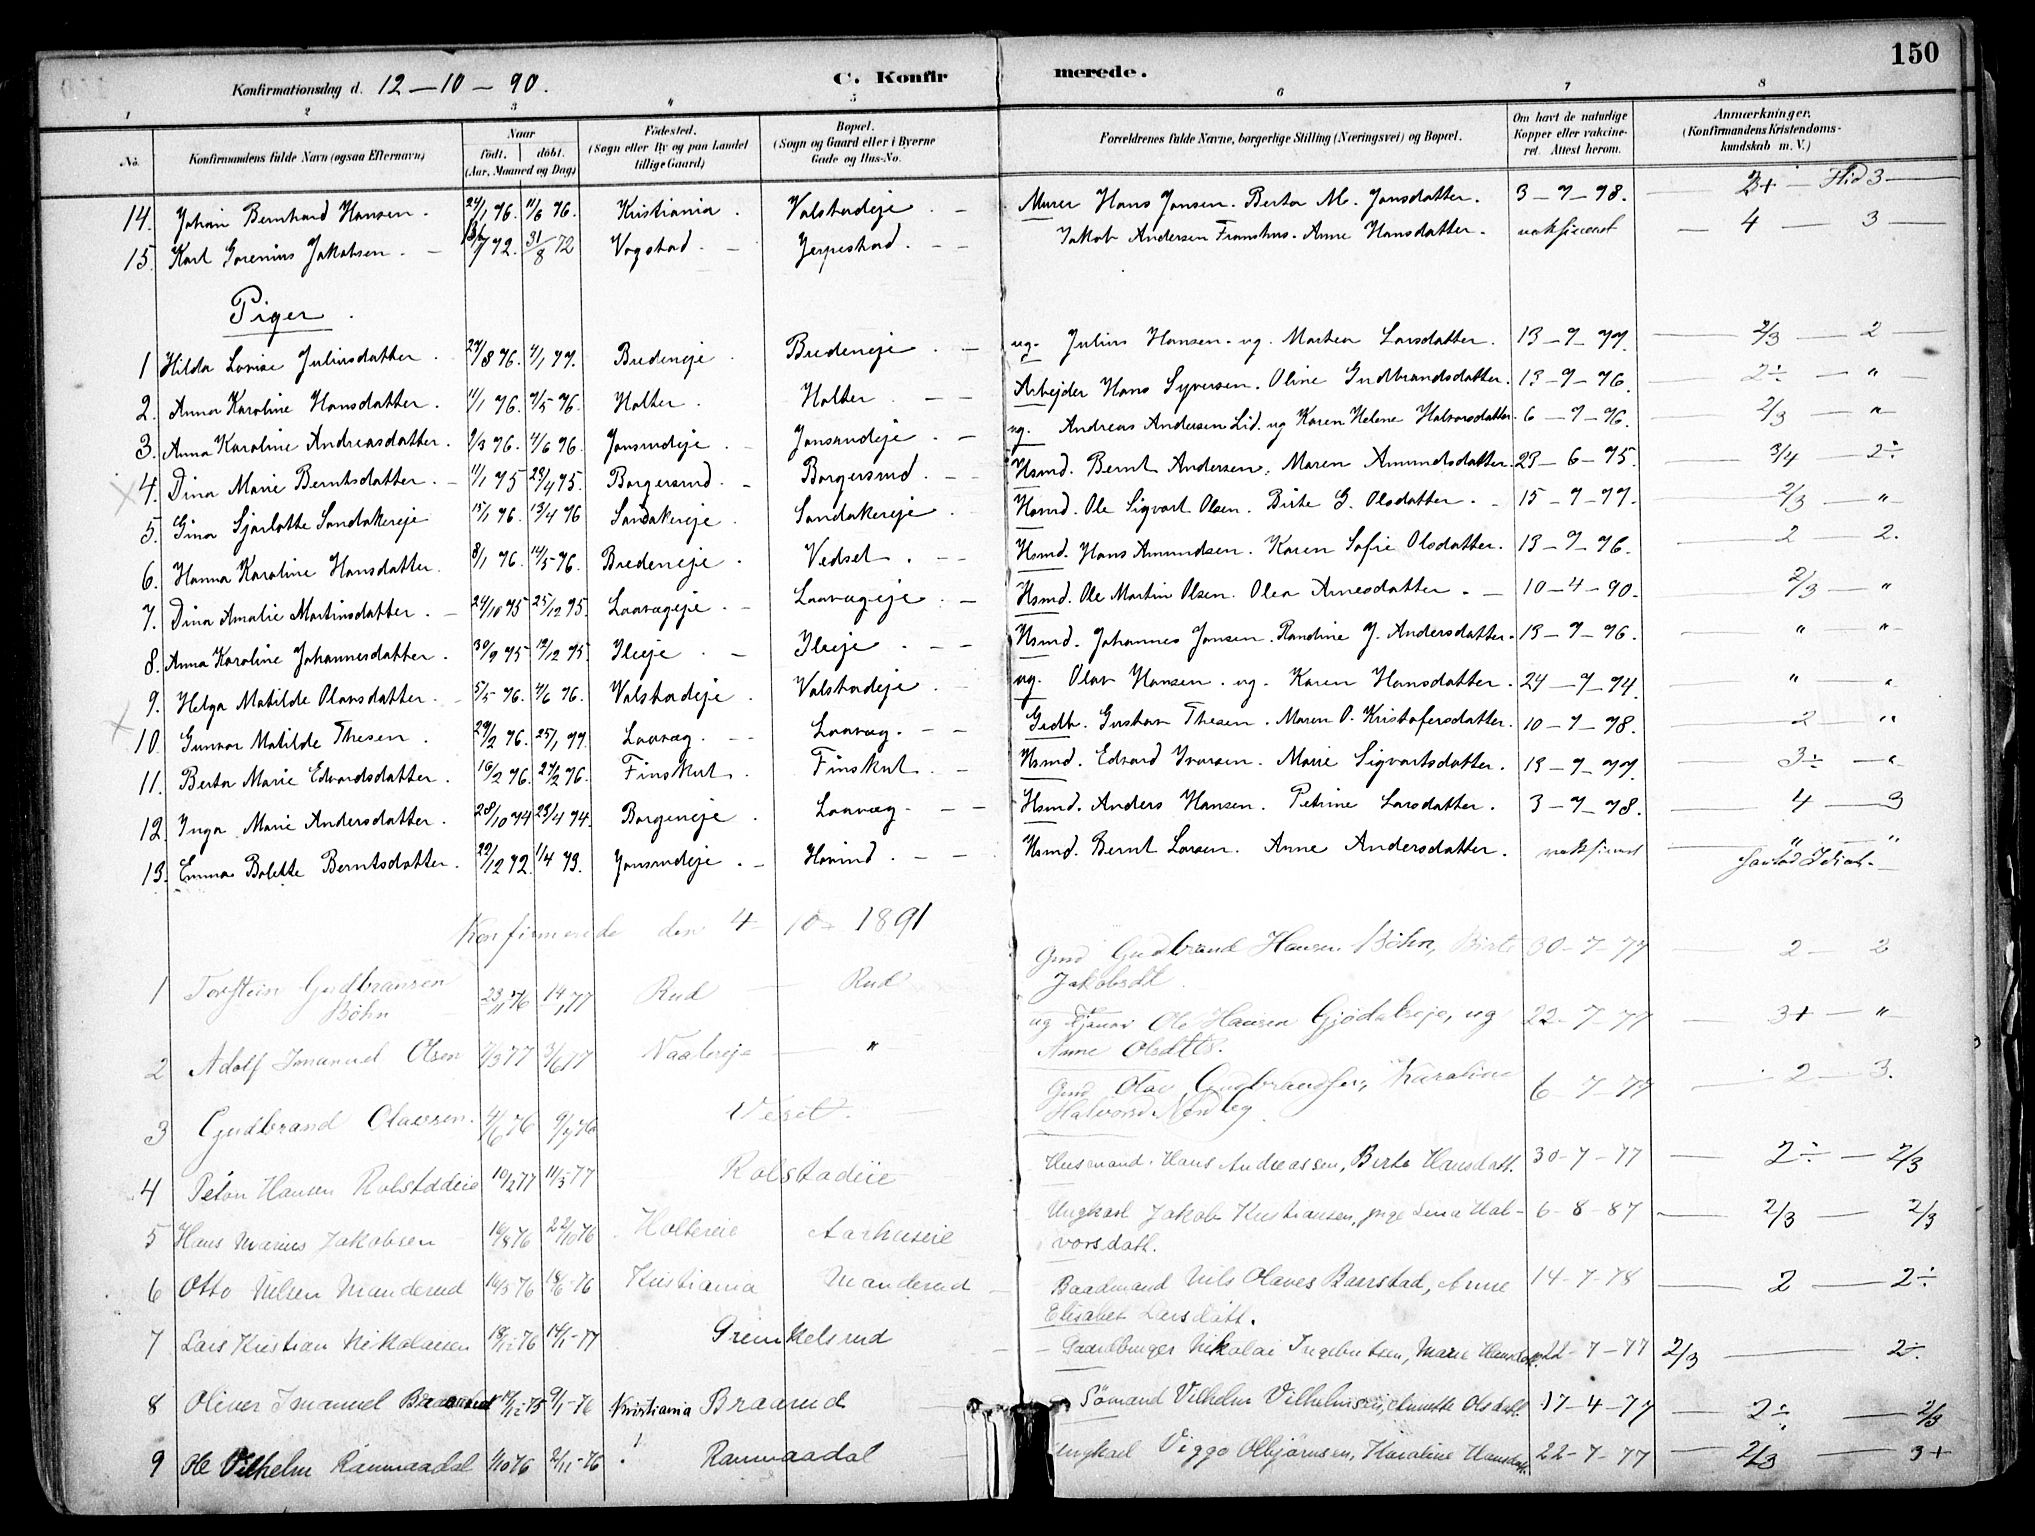 150
Konfirmationsdag d. 12 – 10 – 90. C. Konfir merede.
1 2 3 4 5 6 7 8
No. Konfirmandens fulde Navn (ogsaa Efternavn) Naar født. døbt. (Aar, Maaned og Dag) Fødested. (Sogn eller By og paa Landet tillige Gaard) Bopæl. (Sogn og Gaard eller i Byerne Gade og Hus-No. Forældrenes fulde Navne, borgerlige Stilling (Næringsvei) og Bopæl. Om havt de naturlige Kopper eller vakcineret. Attest herom. Anmærkninger, (Konfirmandens Kristendomskundskab m. V.)
14. Johan Bernhard Hansen. 11/6 76. Kristiania. Valstadeje. – Murer Hans Jonsen. Berta M. Jonsdatter. 3 – 7 – 78. 2+ – Flid 3
15. Karl Jakobsen. – 31/8 72 Vogstad. – Jerpestad. – Jakob Andersen Anne Hansdatter. vaksineret 4 – 3
Piger.
1 Hilda Lovise Juliusdatter. 27/8 76. 7/1 77. Bredeneje. Bredeneje. – ug. Julius Hansen. ug. Martea Larsdatter. 13 – 7 – 77. 2/3 – 2
2. Anna Karoline Hansdatter. 11/1 76. 7/5 76. Holter. Holter. – Arbejder Hans Syversen. Oline Gudbrandsdatter. 13 – 7 – 76. 2÷ – "
3. Anna Karoline Andreasdatter. 9/3 76. 4/6 76. Jonsrudeje. – Jonsrudeje. – ug. Andreas Andersen Lid. ug Karen Helene Halvorsdatter 6 – 7 – 76. 2/3 – "
4. Dina Marie Berntsdatter. – 11/1 75 23/4 75. Borgersrud. – Borgersrud. – Hsmd. Bernt Andersen. Maren Amundsdatter. 23 – 6 – 75. 3/4 – 2÷
5. Gina Sjarlotte Sandakereje 15/1 76. 13/4 76 Sandakereje. Sandakereje. Hsmd. Ole Sigvart Olsen. Birte G. Olsdatter. – 15 – 7 – 77. 2/3 – "
6. Hanna Karoline Hansdatter. 8/1 76. 14/5 76. Bredeneje. Vedset. – Hsmd. Hans Amundsen. Karen Sofie Olsdatter. 13 – 7 – 76. 2 2.
7. Dina Amalie Martinsdatter. – 24/10 75 25/12 75. Laavageje. – Laavageje. – Hsmd. Ole Martin Olsen. Olea Arnesdatter. – 10 – 4 – 90. 2/3 – "
8. Anna Karoline Johannesdatter. 30/9 75 12/12 75. Ileeje. – Ileeje. – Hsmd. Johannes Jonsen. Randine J. Andersdatter. 13 – 7 – 76. " "
9. Helga Matilde Olavsdatter. 5/5 76. 4/6 76. Valstadeje. Valstadeje. ug. Olav Hansen. ug. Karen Hansdatter. 24 – 7 – 74. " "
10. Gunvor Matilde Thesen. 29/2 76. 25/1 77. Laavag. – Laavag. – Grdb. Gustav Thesen. Maren O. Kristofersdatter. 10 – 7 – 78. 2 "
11. Berta Marie Edvardsdatter. 16/2 76. 27/2 76. Finskut. Finskut. – Hsmd. Edvard Ivarsen. Marie Sigvartsdatter. 13 – 7 – 77. 3÷ – "
12. Inga Marie Andersdatter. 28/10 74 23/4 74. Borgeneje. Laavag. – Hsmd. Anders Hansen. Petrine Larsdatter. 3 – 7 – 78. 4 – 3
13. Emma Bolette Berntsdatter. 22/12 72. 1/4 73. Jonsrudeje. – Hovind. – Hsmd. Bernt Larsen. Anne Andersdatter. vaksineret " "
Konfirmerede den 4 – 10 – 1891
1 Torstein Gudbransen Bøhn 23/1 76 14/1 77 Rud – Rud Gmd Gudbrand Hansen Bøhn, Birte Jakobsdt. 30 – 7 – 77 2 – 2
2 Adolf Imanuel Olsen 77 3/6 77 – " ug Ole Hansen ug Anne Olsdtt. 22 – 7 – 77 3+ – "
3 Gudbrand Olavsen. 4/6 76 9/7 76 Veset. Gmd Olav Gudbrandsen, Karoline Halvorsd. Nordby 6 – 7 – 77 2 – 3.
4 Peter Hansen Rolstadeie 10/2 77 11/3 77 Rolstadeie Husmand. Hans Andreassen, Birte Hansdatt. 30 – 7 – 77 2÷ – 2/3
5 Hans Marius Jakobsen 16/8 76 22/10 76 Holtereie Aarhuseie Ungkarl Jakob Kristiansen, pige Lina Halvorsdatt. 6 – 8 – 87 2/3 – 2/3
6 Otto Nilsen Manderud 16/3 76 18/6 – 76 Kristiania Manderud Baadmand Nils Olaves Baarstad, Anne Elisabet Larsdatt. 14 – 7 – 78 2 – 2÷
7 Lars Kristian Nikolaisen 18/12 76 14/1 – 77 Grinkelsrud Gaardbruger Nikolai Ingebretsen, Marie Hansdatt. 22 – 7 – 77 2/3 2÷
8 Oliver Imanuel Braarud 17/12 75 9/1 – 76 Kristiania Braarud Sømand Vilhelm Vilhelmsen, Annette Olsdatt. 17 – 4 – 77 2÷ – 2/3
9 Ole Vilhelm Ranmaadal 1/10 76 2/11 – 76 Ranmaadal ungkarl Viggo Olbjørnsen, Karoline Hansdatt. 22 – 7 – 77 2/3 3+